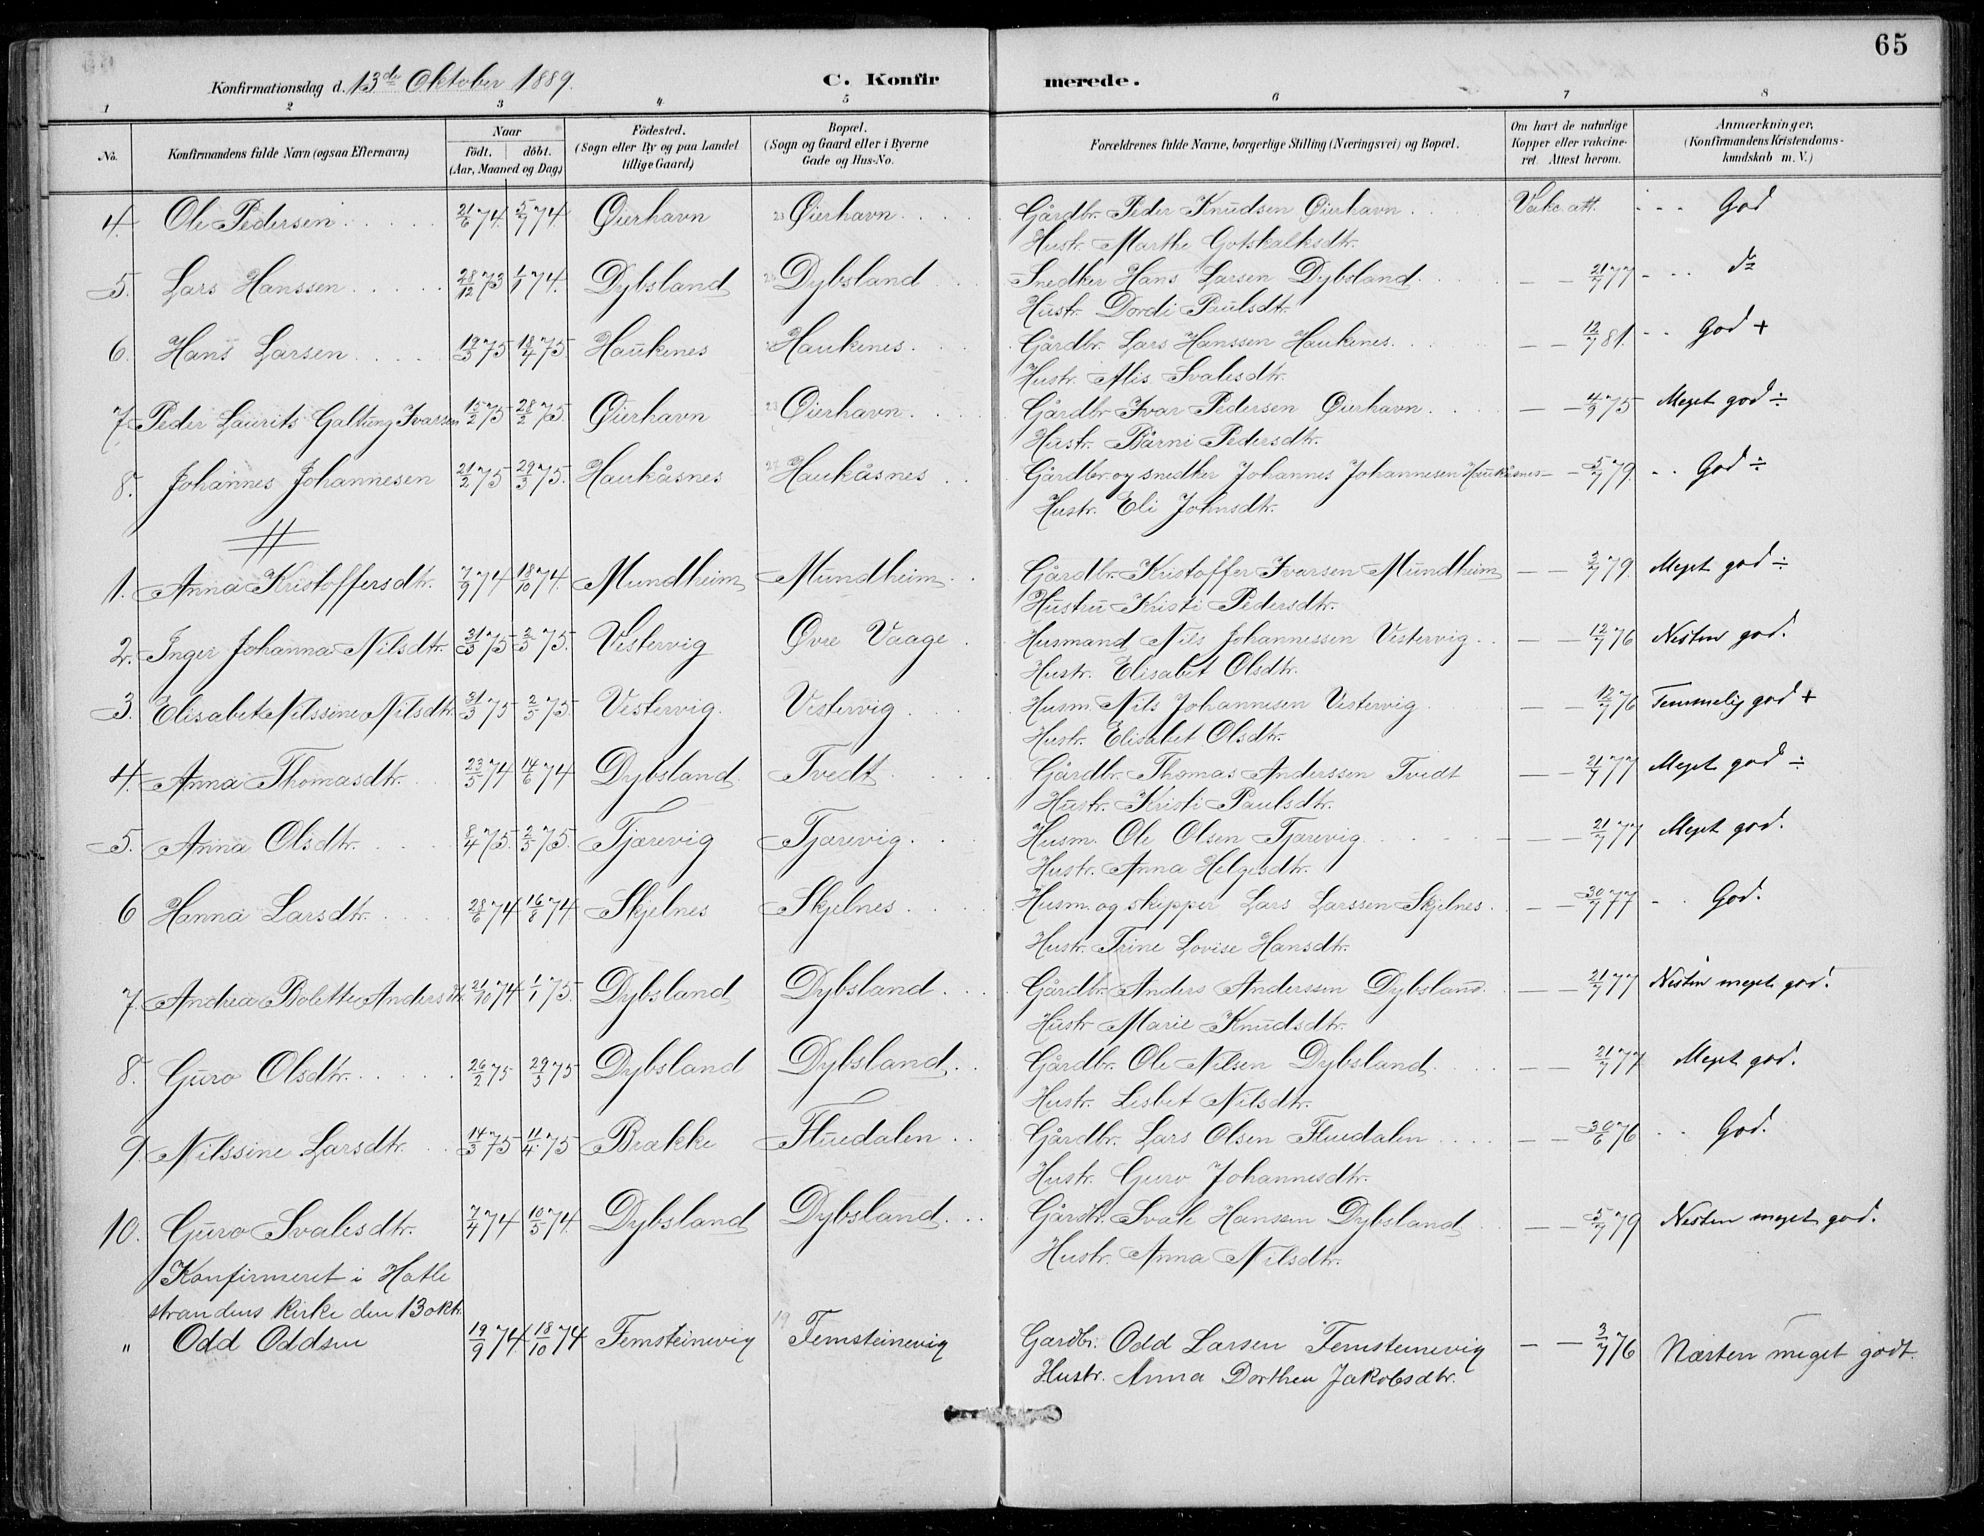 65
Konfirmationsdag d. 13de Oktober 1889. C. Konfirmerede.
1 2 3 4 5 6 7 8
No. Konfirmandens fulde Navn (ogsaa Efternavn) Naar født. døbt. (Aar, Maaned og Dag) Fødested. (Sogn eller By og paa Landet tillige Gaard) Bopæl. (Sogn og Gaard eller i Byerne Gade og Hus-No. Forældrenes fulde Navne, borgerlige Stilling (Næringsvei) og Bopæl. Om havt de naturlige Kopper eller vakcineret. Attest herom. Anmærkninger, (Konfirmandens Kristendomskundskab m. V.)
4. Ole Pedersen 21/6 74. 5/7 74. Øierhavn 23 Øierhavn Gårdbr. Peder Knudsen Øierhavn Vakc. att. God
Hustr. Marthe Gotskalksdtr.
5. Lars Hanssen 28/12 73 1/1 74. Dybsland Dybsland Snedker Hans Larsen Dybsland — — 21/7 77 do
Hustr. Dordi Paulsdtr.
6. Hans Larsen 19/3 75 18/4 75 Haukenes Haukenes Gårdbr. Lars Hanssen Haukenes — — 12/7 81. God +
Hustr. Alis Svalesdtr.
7. Peder Laurits Galtung Ivarsen 15/2 75 28/2 75. Øierhavn 23 Øierhavn Gårdbr. Ivar Pedersen Øierhavn — — 4/9 75 Meget god ÷
Hustr. Bärni Pedersdtr.
8. Johannes Johannesen 21/2 75 29/3 75. Haukåsnes Haukåsnes Gårdbr. og snedker Johannes Johannesen Haukåsnes — — 5/7 79. God ÷
Hustr. Eli Johnsdtr.
1. Anna Kristoffersdtr. 7/9 74 18/10 74. Mundheim Mundheim Gårdbr. Kristoffer Ivarsen Mundheim — — 2/7 79. Meget god ÷
Hustru Kristi Pedersdtr.
2. Inger Johanna Nilsdtr. 31/3 75 2/5 75. Vestervig Øvre Vaage Husmand Nils Johannessen Vestervig — — 12/7 76 Nesten god.
Hustr. Elisabet Olsdtr.
3. Elisabet Nilssine Nilsdtr. 31/3 75 2/5 75. Vestervig. Vestervig Husm. Nils Johannesen Vestervig — — 12/7 76 Temmelig god +
Hustr. Elisabet Olsdtr.
4. Anna Thomasdtr. 23/5 74 14/6 74 Dybsland Tvedt Gårdbr. Thomas Anderssen Tvedt — — 21/7 77 Meget god ÷
Hustr. Kristi Paulsdtr.
5. Anna Olsdtr. 8/4 75. 2/5 75. Tjærevig Tjærevig Husm. Ole Olsen Tjærevig — — 21/7 77 Meget god.
Hustr. Anna Helgesdtr.
6 Hanna Larsdtr. 28/6 74 16/8 74 Skjelnes Skjelnes Husm. og skipper Lars Larssen Skjelnes. — — 30/7 77 God.
Hustr. Trine Lovise Hansdtr.
7. Andrea Bolette Andersdtr. 21/10 74 1/1 75. Dybsland Dybsland Gårdbr. Anders Anderssen Dybsland — — 21/7 77 Nesten meget god.
Hustr Marie Knudsdtr.
8. Guro Olsdtr. 26/2 75 29/3 75 Dybsland Dybsland Gårdbr. Ole Nilsen Dybsland — — 21/7 77 Meget god.
Hustr. Lisbet Nilsdtr.
9. Nilssine Larsdtr. 14/3 75 11/4 75 Brakke Fluedalen Gårdbr. Lars Olsen Fluedalen — — 30/6 76 God.
Hustr. Guro Johannesdtr.
10. Guro Svalesdtr. 7/4 74 10/5 74. Dybsland Dybsland Gårdbr. Svale Hanssen Dybsland — — 5/7 79 Nesten meget god.
Hustr. Anna Nilsdtr.
Konfirmeret i Hatle
strandens kirke den 13 okt.
" Odd Oddsen 19/9 74. 18/10 74 Femsteinevig 19 Femsteinevig Gardbr. Odd Larsen Femsteinevig — — 3/7 76 Næsten meget godt.
Hustr. Anna Dorthea Jakobsdtr.